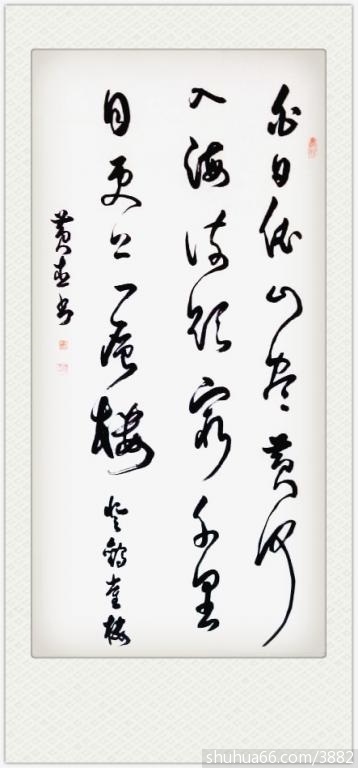 白日依山尽黄河
入海流欲穷千里
目更上一层楼 登鹳雀楼
黄书
shuhua66.com/3882